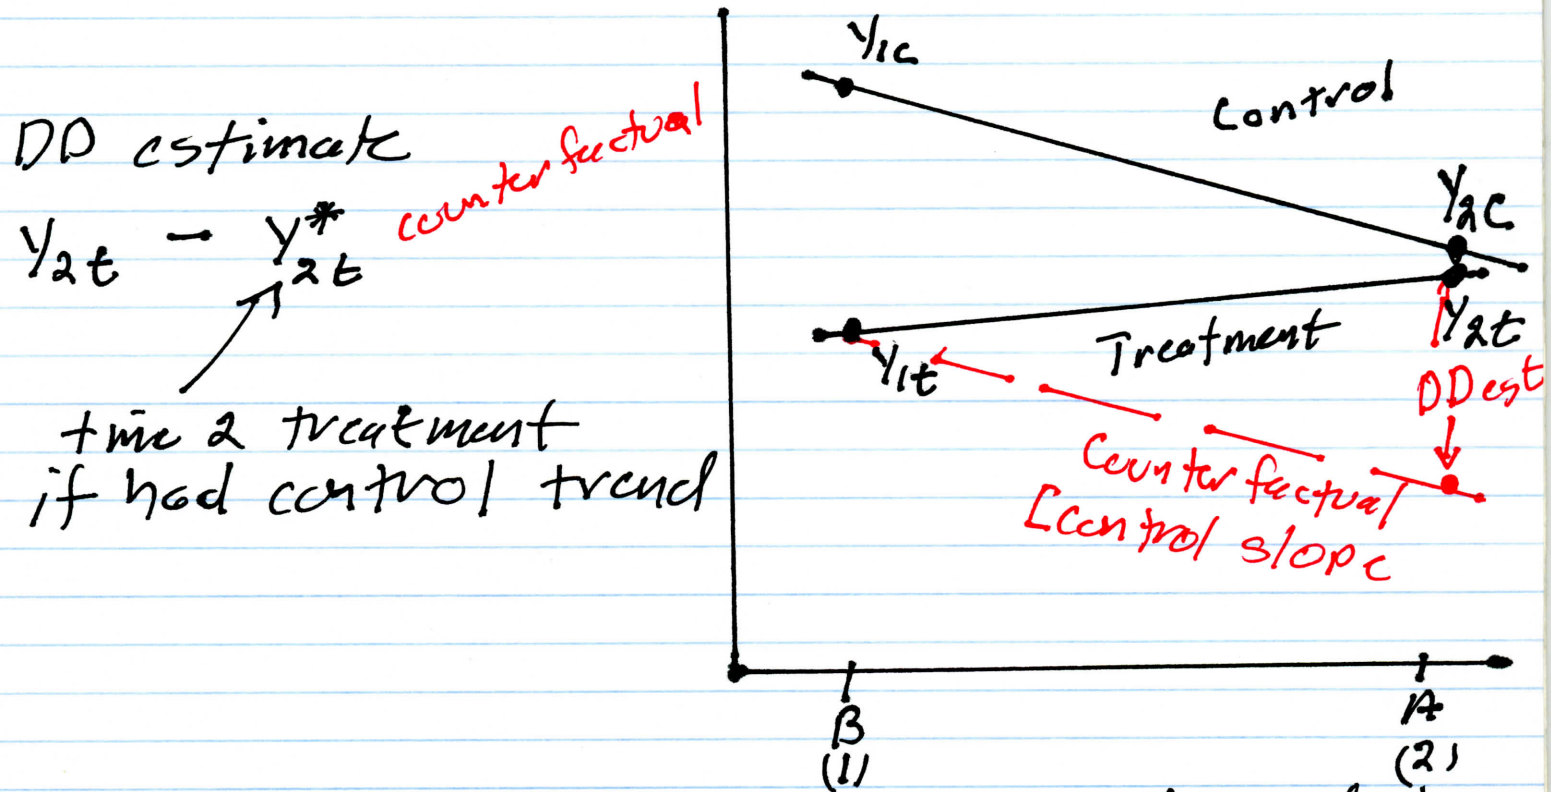 DD estimate
counterfactual
Y2t - Y*2t
time 2 treatment
if had control trend
Y1c
Control
Y2C
Y1t
Treatment
Y2t
DD est
Counterfactual
[control slope
B
A
(1)
(2)